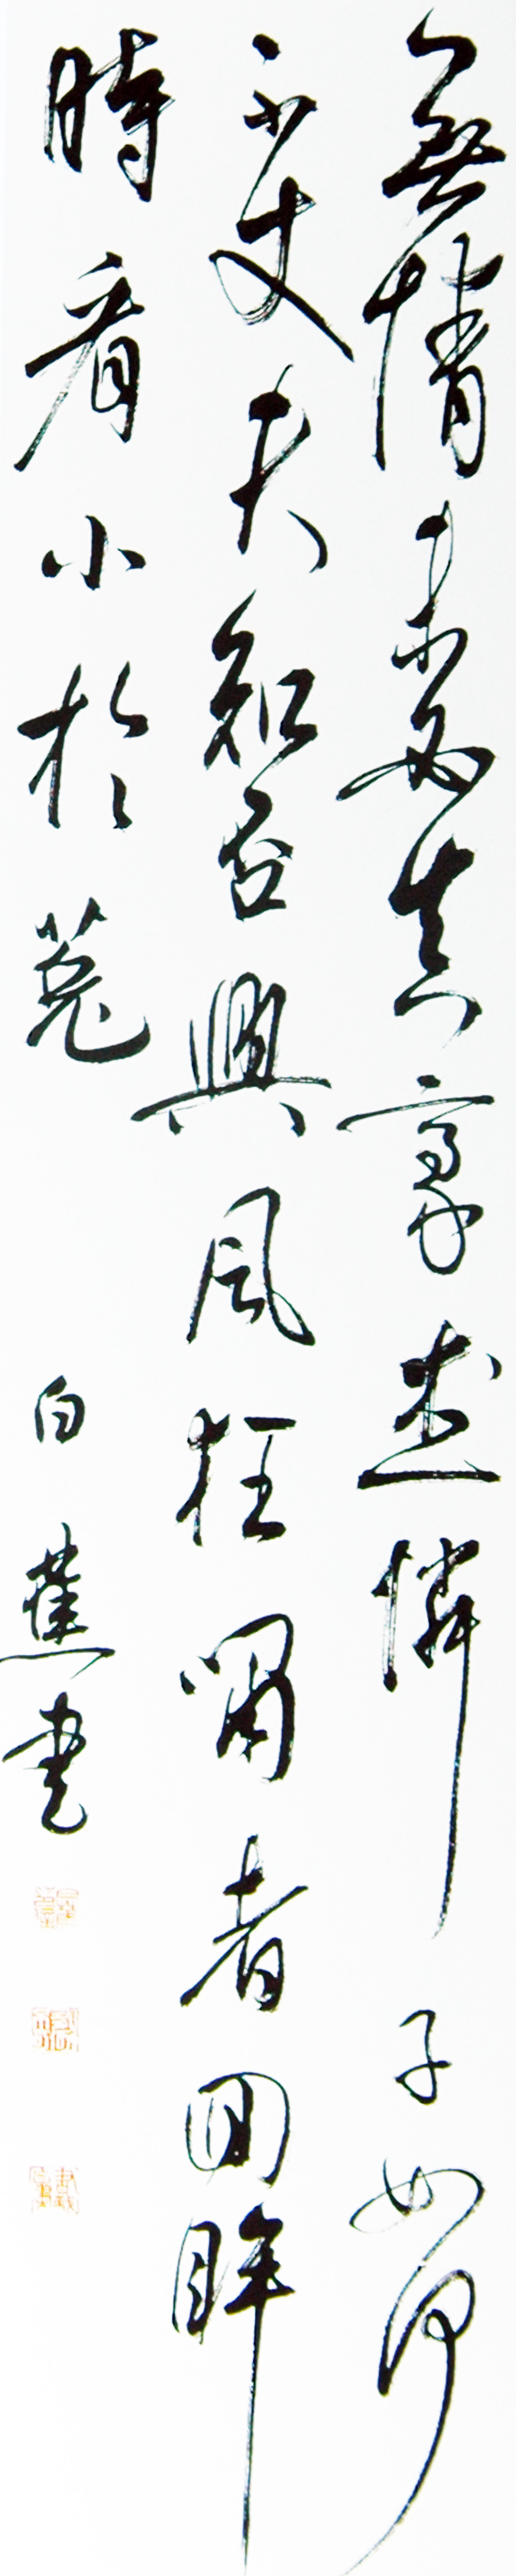 無情未必真豪杰憐子如何
不丈夫知否興風狂嘯者回眸
時看小於菟
白蕉書